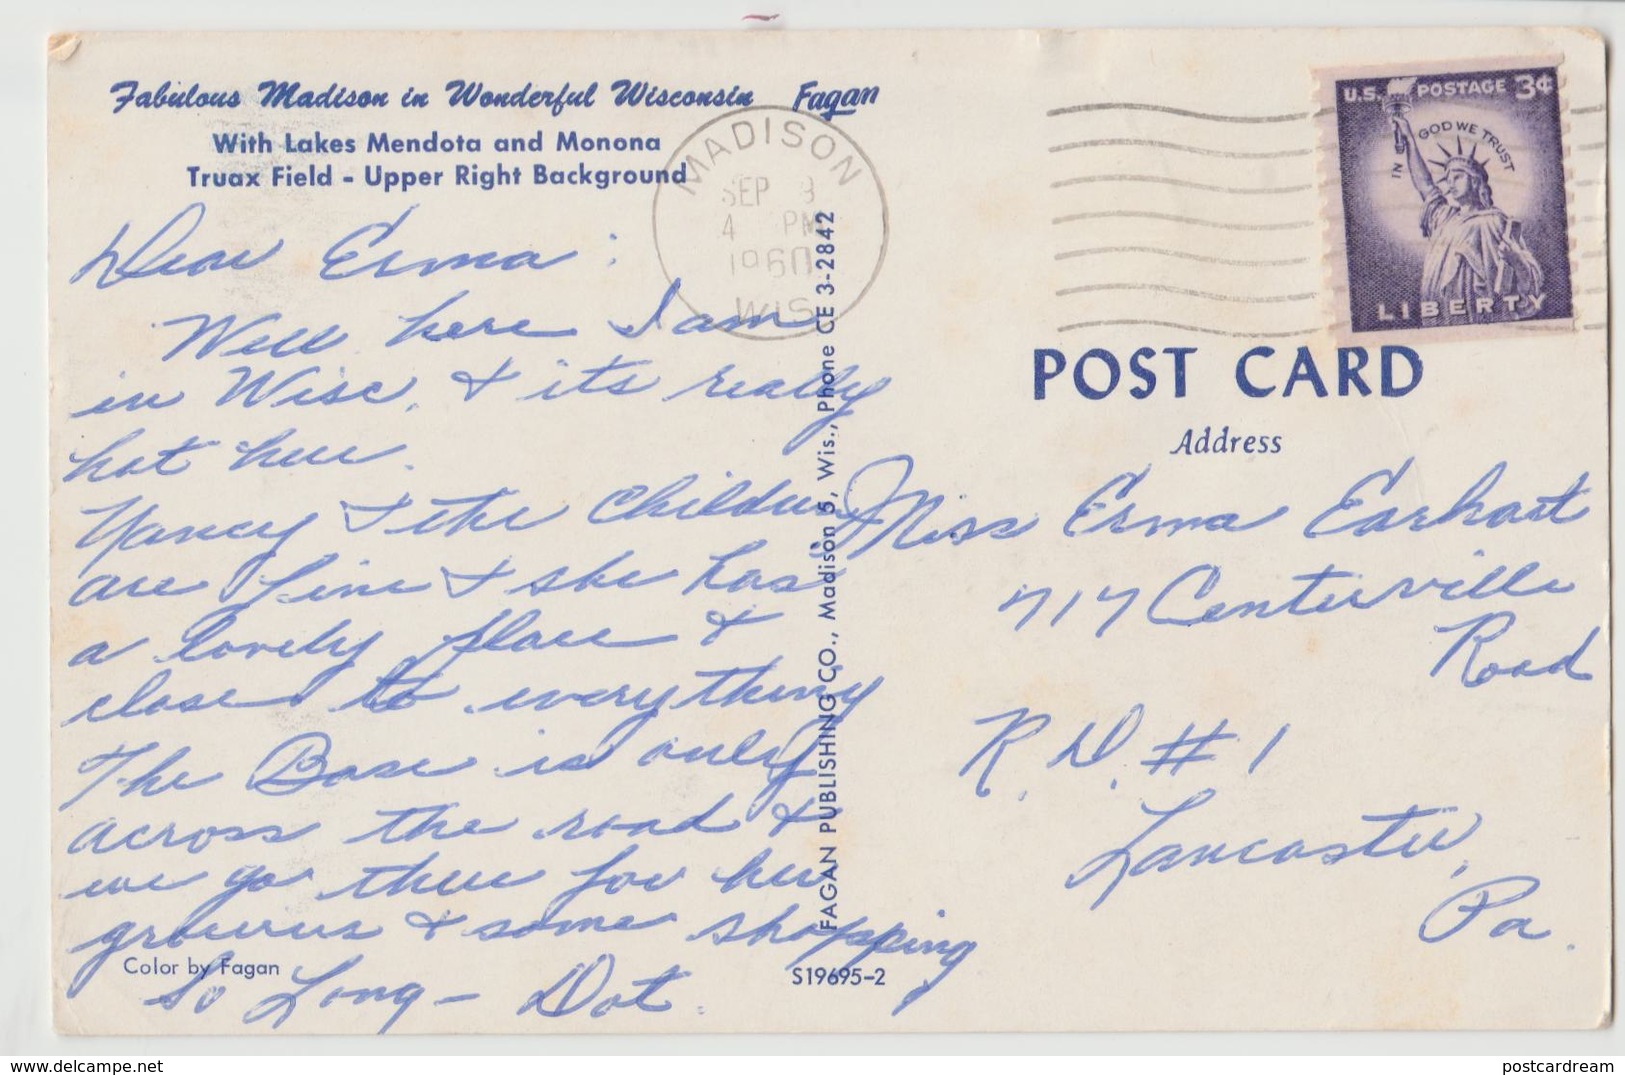 Fabulous Madison in Wonderful Wisconsin Fagan
With Lakes Mendota and Monona
Truax Field - Upper Right Background
Dear Erma :
Well here I am
in Wisc. & its really
hot here.
Nancy & the children
are fine & she has
a lovely place &
close to everything
The Base is only
across the road &
we go there for her
groceries & some shopping
So Long - Dot.
Color by Fagan
S19695-2
FAGAN PUBLISHING CO., Madison 5, Wis., Phone CE 3-2842
MADISON
SEP
4 PM
1960
WIS.
U.S. POSTAGE 3¢
IN GOD WE TRUST
LIBERTY
POST CARD
Address
Miss Erma Earhart
717 Centerville
Road
R.D. #1
Lancaster,
Pa.
postcardream